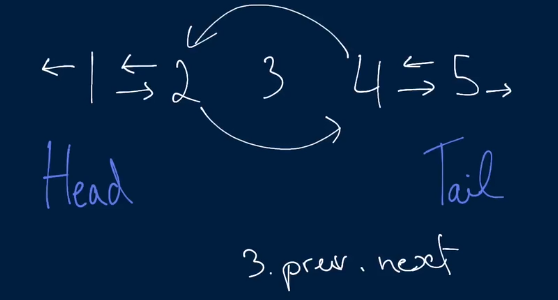 1 2 3 4 5
Head Tail
3. prev. next